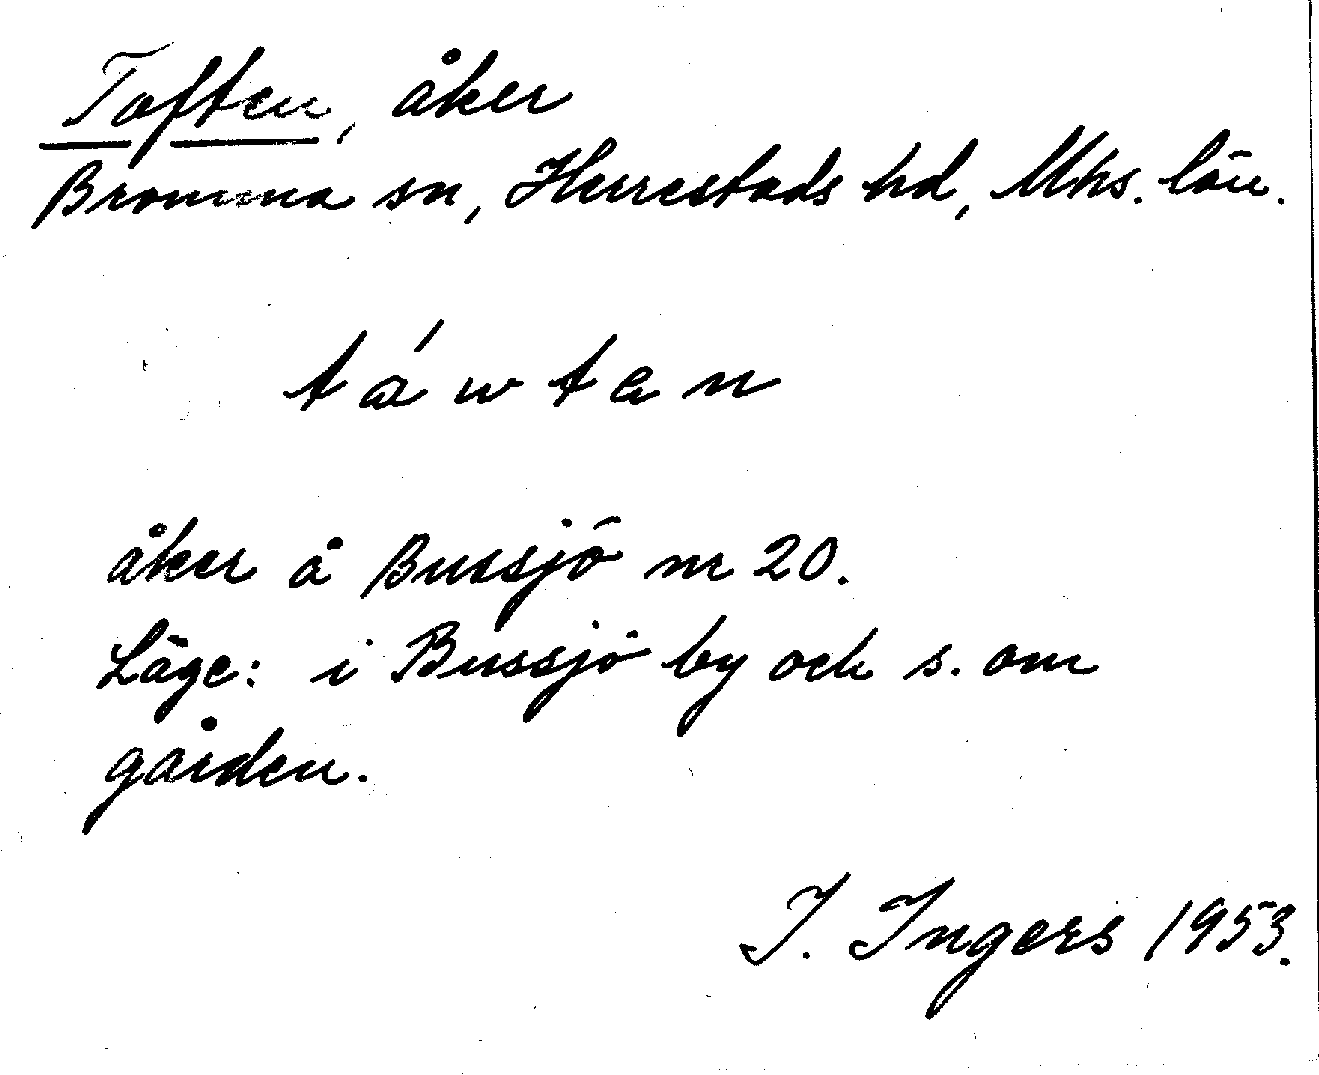 Toften, åker
Bromma sn, Herrestads hd, Mhs. län.
táwtan
åker å Bussjö nr 20.
Läge: i Bussjö by och s. om
gården.
I. Ingers 1953.